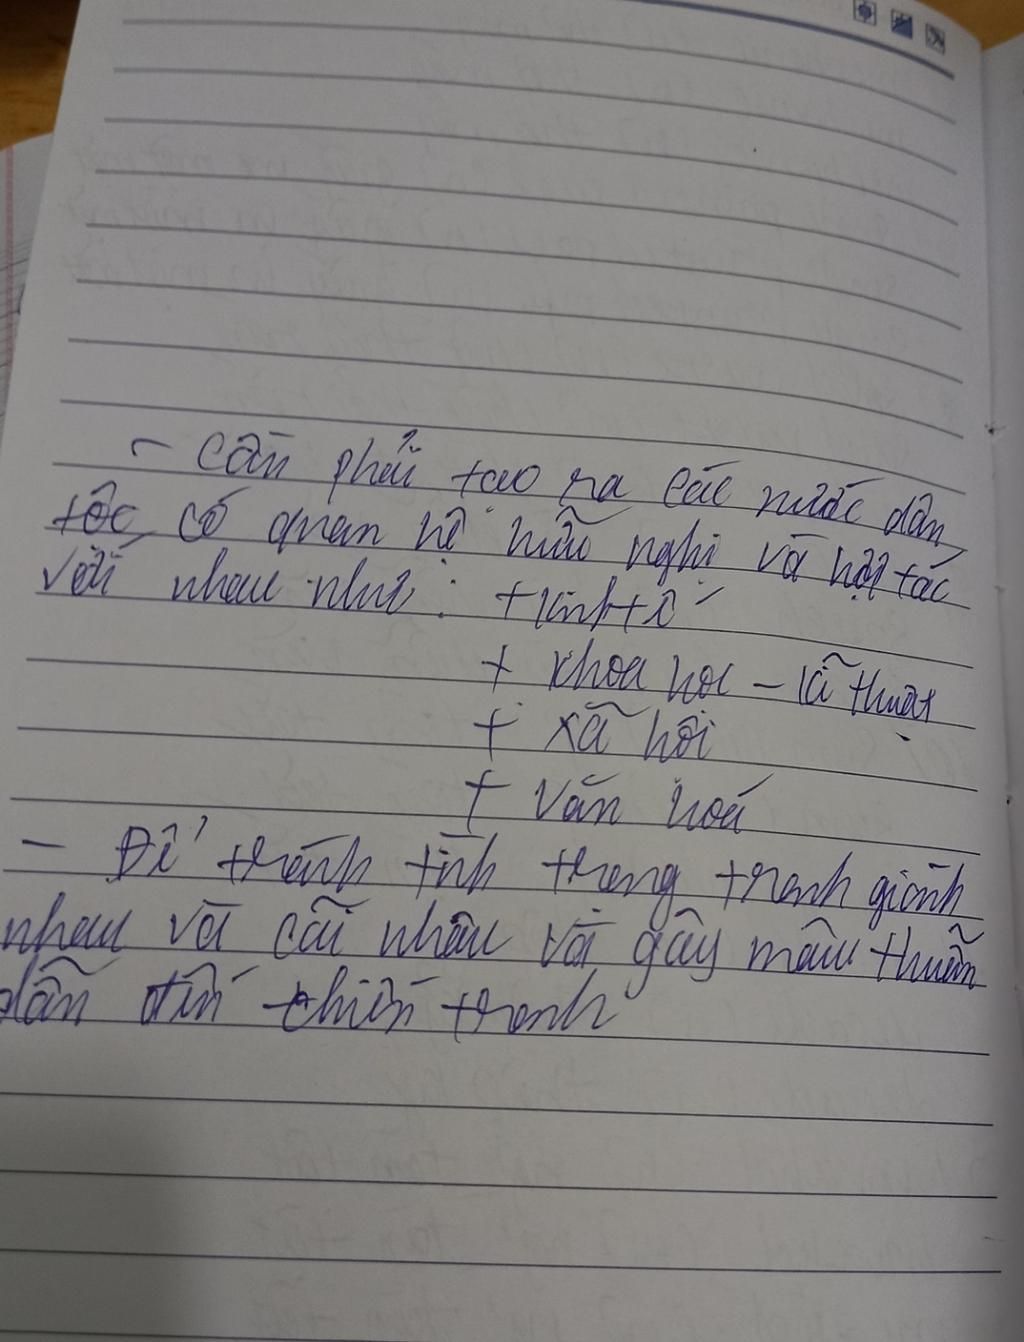 - Cần phải tạo ra các nước dân
tộc có quan hệ hữu nghị và hợp tác
với nhau như: + kinh tế
+ khoa học - kĩ thuật
+ xã hội
+ Văn hoá
- Để tránh tình trạng tranh giành
nhau và cãi nhau và gây mâu thuẫn
dẫn đến chiến tranh